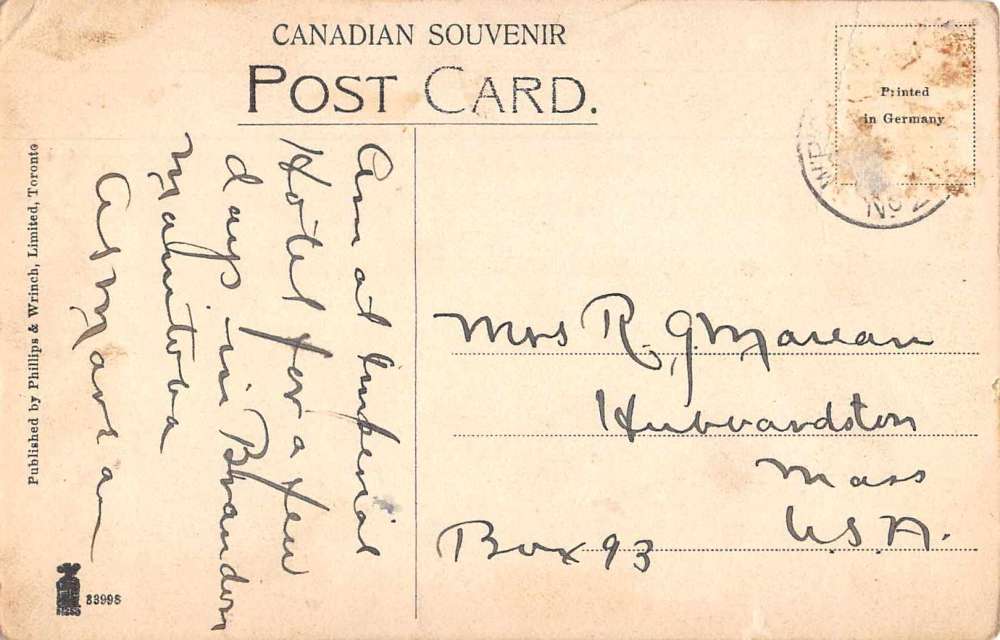 CANADIAN SOUVENIR
POST CARD.
Printed
in Germany
No 2
Am at Imperial
Hotel for a few
days in Brandon
Manitoba
A S Marean
Mrs R. G. Marean
Hubbardston
Mass
U.S.A.
Box 93
Published by Phillips & Wrinch, Limited, Toronto
33998